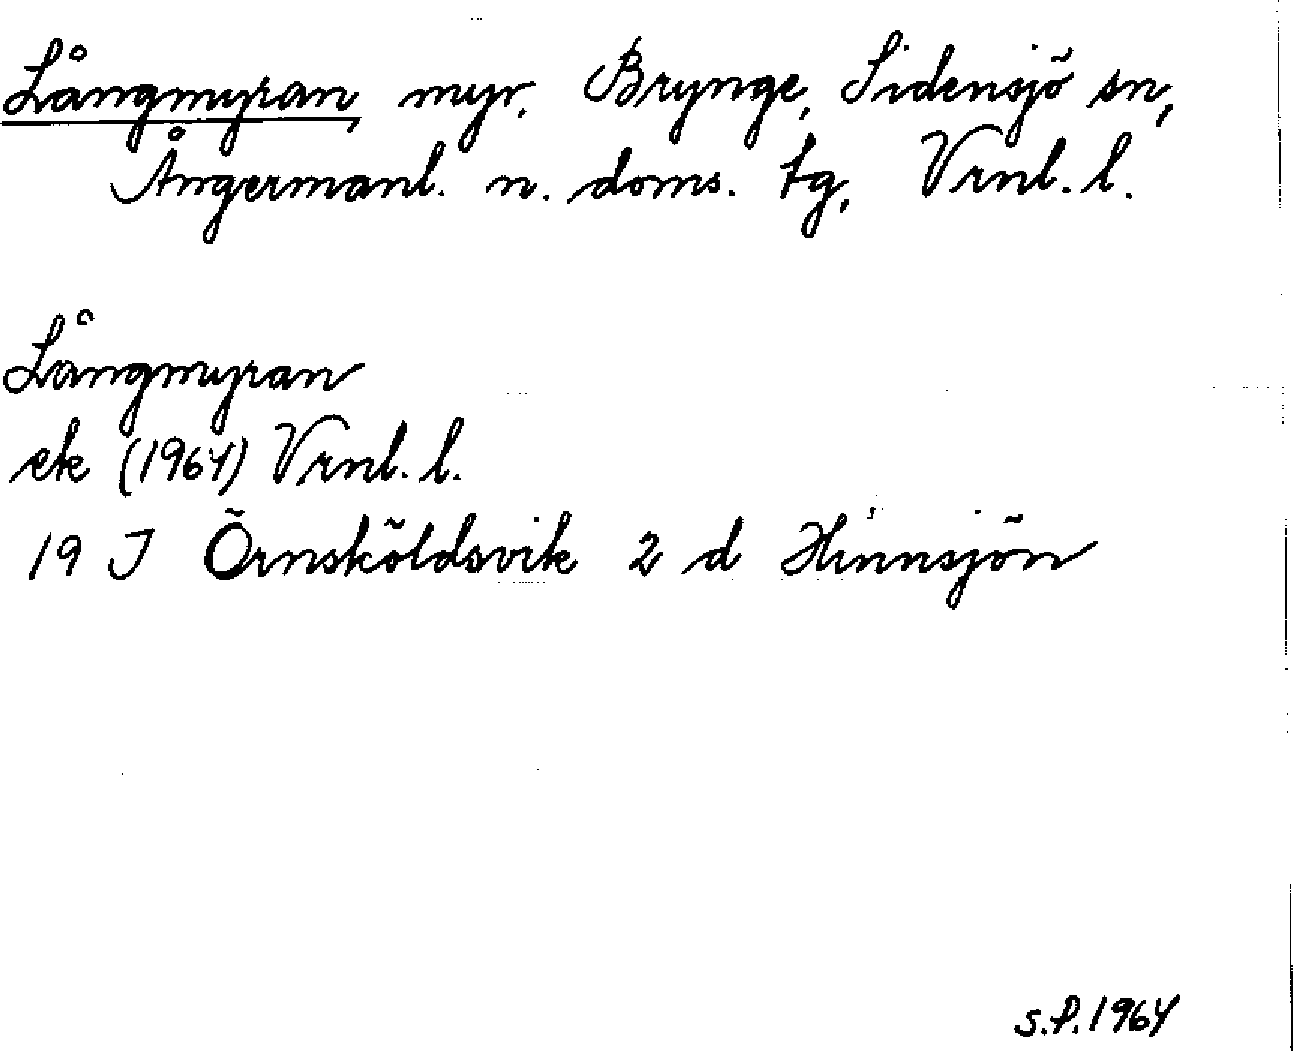 Långmyran, myr, Brynge, Sidensjö sn,
Ångermanl. n. doms. tg, Vrnl. l.
Långmyran
ek (1964) Vrnl. l.
19 J Örnsköldsvik 2 d Hinnsjön
S.P. 1964